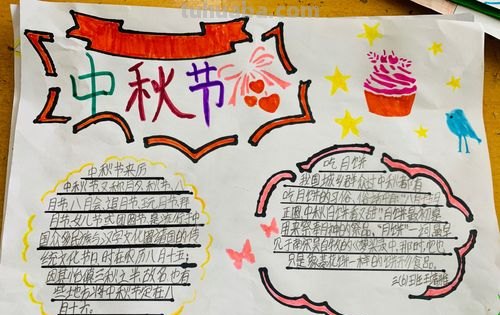 tuhuaba.com
中秋节
中秋节来历
中秋节又称月夕秋节
月节八月会追月节玩月节拜
月节女儿节或团圆节是流行于中
国众多民族与汉字文化圈诸国的传
统文化节日时在农历八月十五;
因其恰值三秋之半故名也有
些地方将中秋节定在八
月十六。
吃月饼
我国城乡群众过中秋都有
吃月饼的习俗俗话中说"八月十五
月圆中秋月饼香又甜"月饼最初是
用来祭奉月神的祭品。"月饼"一词最早
见于南宋吴自牧的《梦粱录》中,那时,它也
只是象菱花饼一样的饼形食品。
三(6)班王